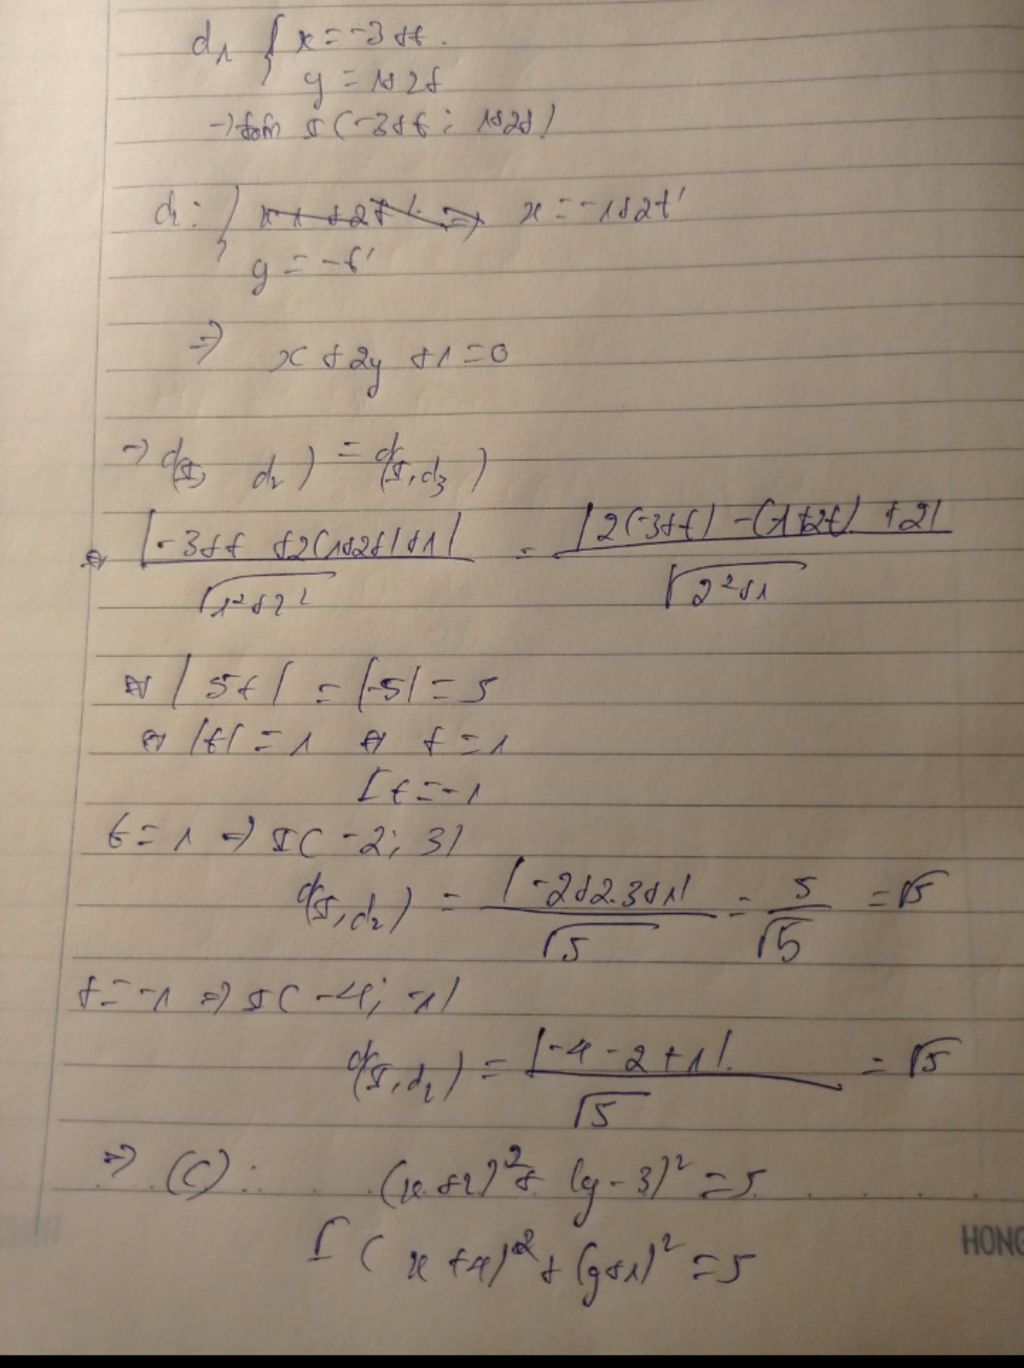 d₁ { x = -3 + t.
y = 1 + 2t
→ tâm I(-3+t ; 1+2t)
d₂: { x = -1 + 2t'
y = -t'
⇒ x + 2y + 1 = 0
→ d(I, d₂) = d(I, d₃)
⇔ |-3+t + 2(1+2t) + 1| / √(1²+2²) = |2(-3+t) - (1+2t) + 2| / √(2²+1)
⇔ |5t| = |-5| = 5
⇔ |t| = 1 ⇔ t = 1
[ t = -1
t = 1 ⇒ I(-2; 3)
d(I, d₂) = |-2 + 2.3 + 1| / √5 = 5/√5 = √5
t = -1 ⇒ I(-4; -1)
d(I, d₂) = |-4 - 2 + 1| / √5 = √5
⇒ (C): (x+2)² + (y-3)² = 5
[ (x+4)² + (y+1)² = 5
HONG